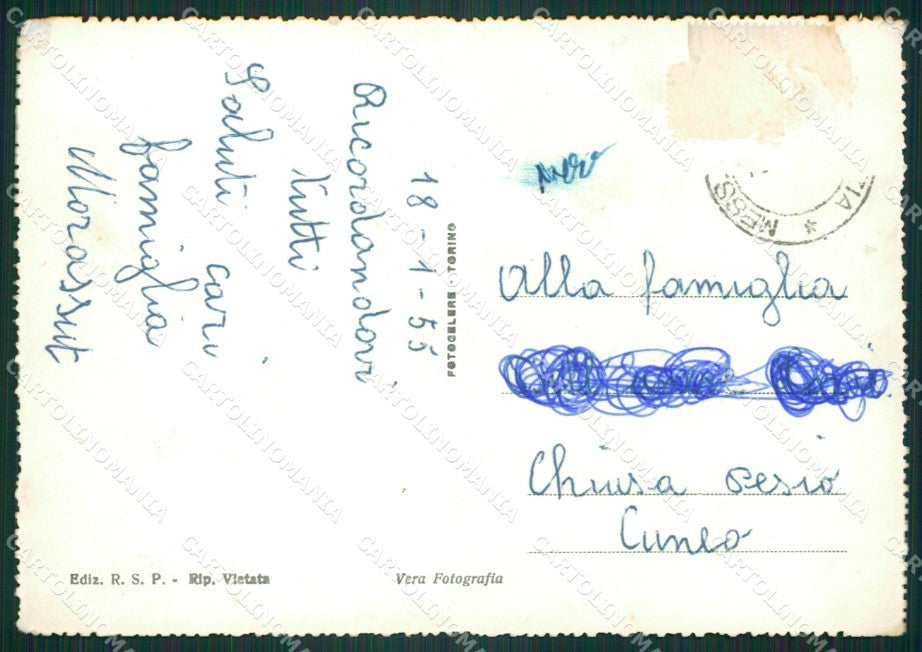 18-1-55
Ricordandovi
tutti
Saluti cari
famiglia
Morassut
FOTOCELERE - TORINO
MESS
IA *
Alla famiglia
Chiusa Pesio
Cuneo
Ediz. R. S. P. - Rip. Vietata
Vera Fotografia
CARTOLINOMANIA